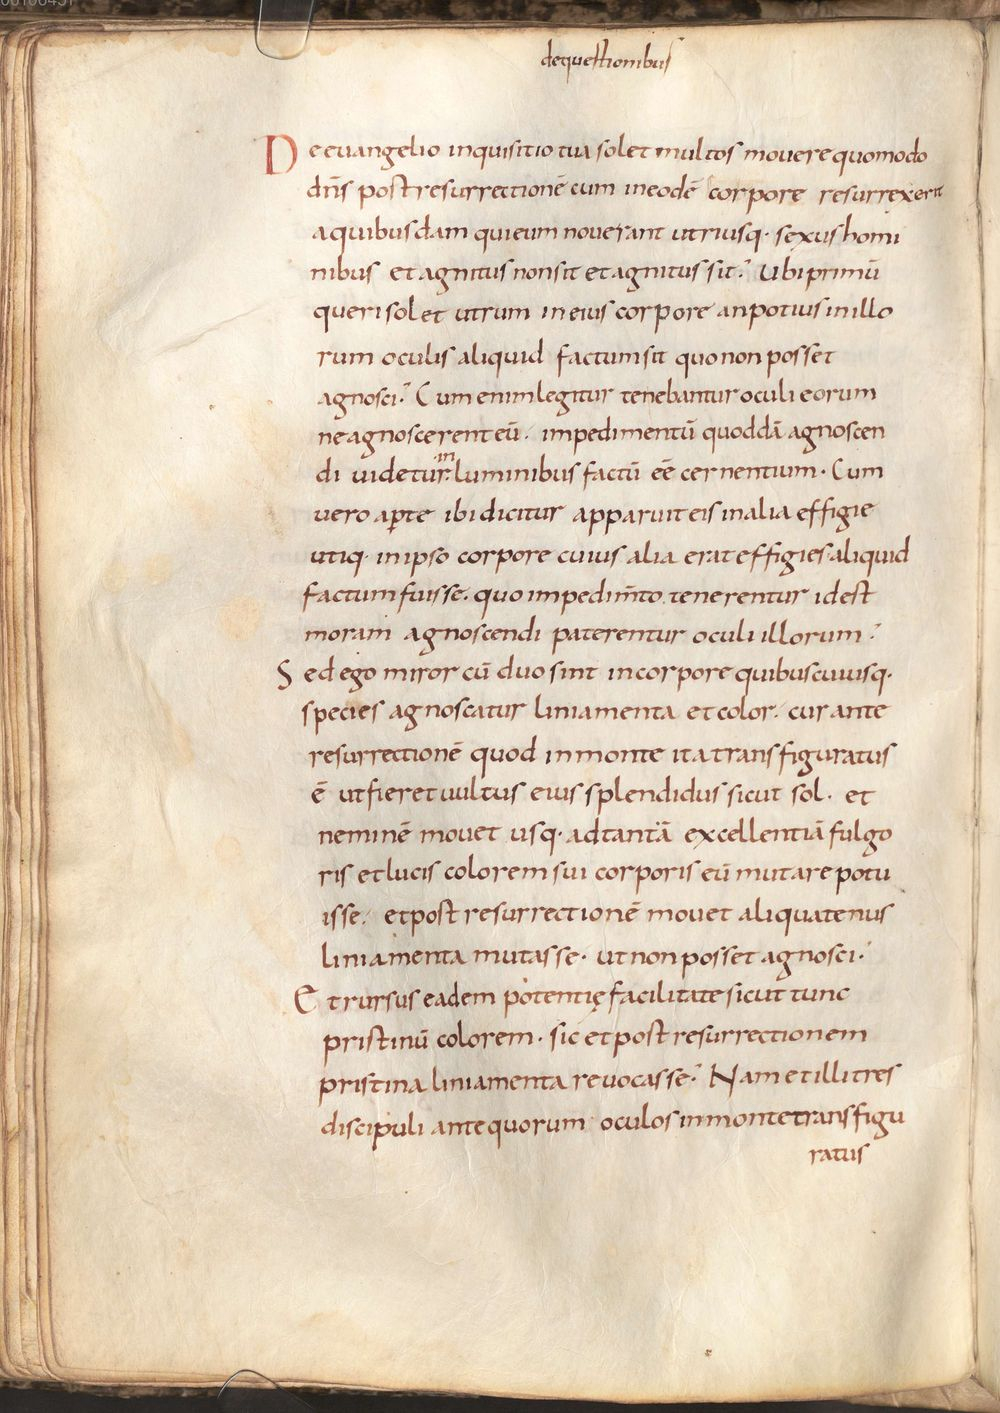 dequestionibus
De euangelio inquisitio tua solet multos mouere quomodo
dñs post resurrectionẽ cum ineodẽ corpore resurrexerit
aquibusdam quieum nouerant utriusq· sexus homi
nibus et agnitus non sit et agnitus sit? Ubi primũ
queri solet utrum ineius corpore an potius inillo
rum oculis aliquid factum sit quo non posset
agnosci? Cum enim legitur tenebantur oculi eorum
ne agnoscerent eũ. impedimentũ quoddã agnoscen
di uidetur in luminibus factũ eẽ cernentium. Cum
uero aꝑte ibi dicitur apparuit eis inalia effigie
utiq· in ipso corpore cuius alia erat effigies aliquid
factum fuisse. quo impedim̃to tenerentur idest
moram agnoscendi paterentur oculi illorum?
Sed ego miror cũ duo sint incorpore quibus cuiusq·
species agnoscatur liniamenta et color. cur ante
resurrectionẽ quod inmonte ita transfiguratus
ẽ ut fieret uultus eius splendidus sicut sol. et
neminẽ mouet usq· adtantã excellentiã fulgo
ris et lucis colorem sui corporis eũ mutare potu
isse. et post resurrectionẽ mouet aliquatenus
liniamenta mutasse. ut non posset agnosci?
Et rursus eadem potentię facilitate sicut tunc
pristinũ colorem. sic et post resurrectionem
pristina liniamenta reuocasse? Nam et illi tres
discipuli ante quorum oculos inmonte transfigu
ratus